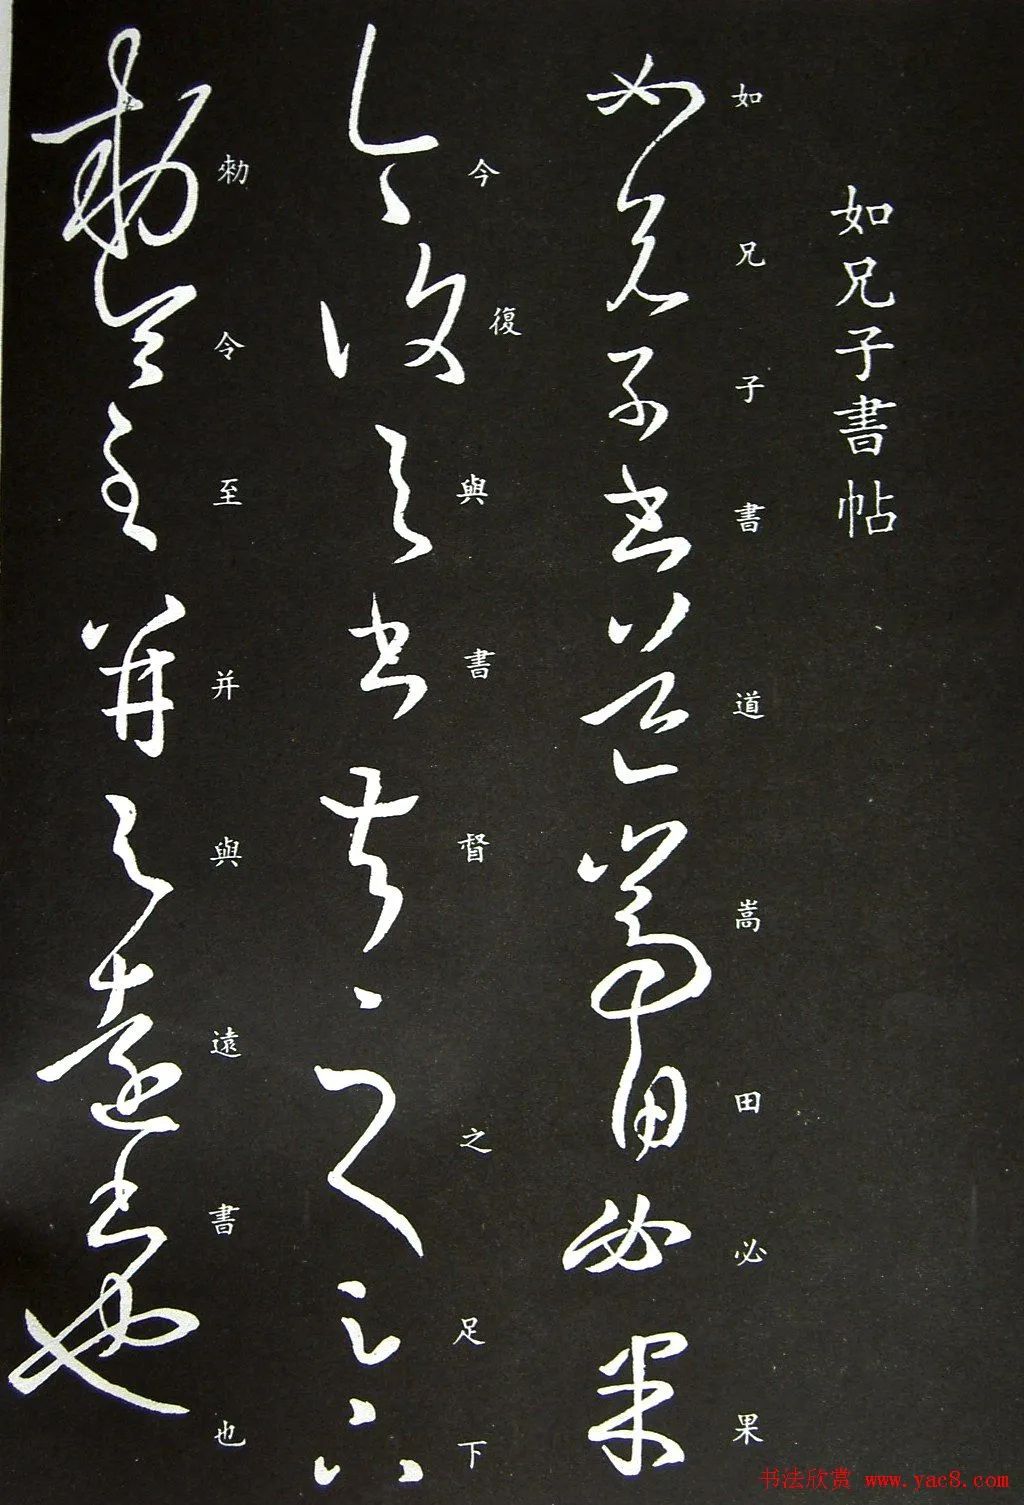 如兄子書帖
如兄子書道嵩田必果
今復與書督之足下
勑令至并與遠書也
书法欣赏 www.yac8.com